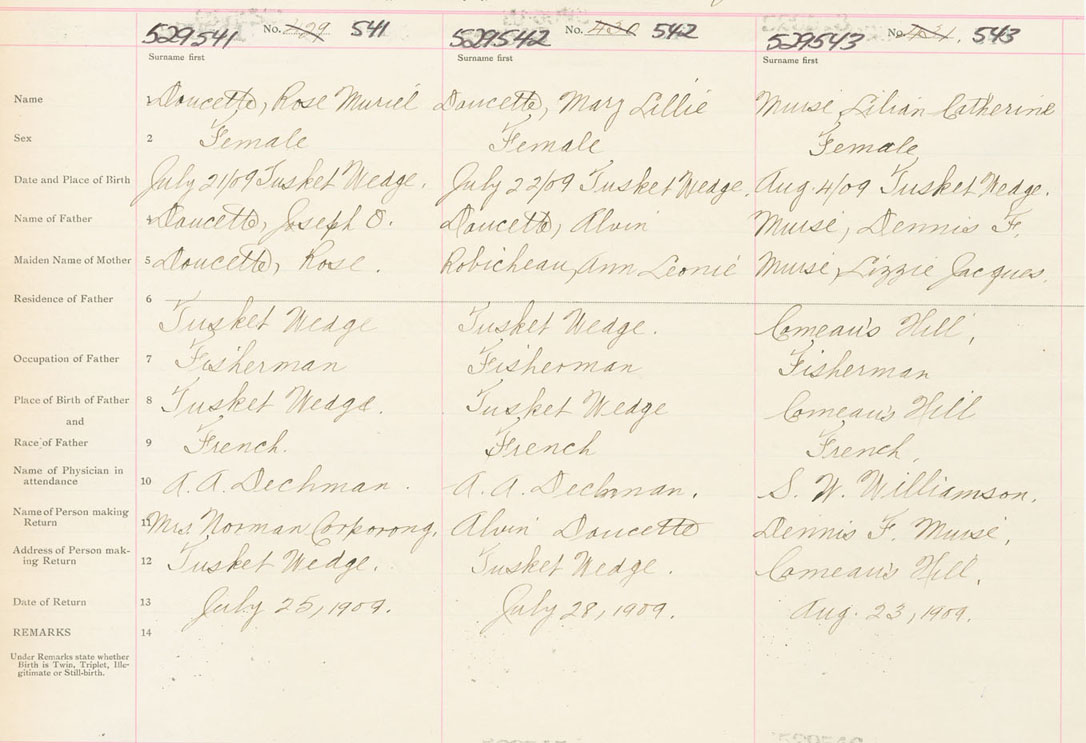 529541 No. 429 541 529542 No. 430 542 529543 No. 431. 543
Surname first Surname first Surname first
Name 1 Doucette, Rose Muriel Doucette, Mary Lillie Muise, Lilian Catherine
Sex 2 Female Female Female
Date and Place of Birth July 21/09 Tusket Wedge. July 22/09 Tusket Wedge. Aug. 4/09 Tusket Wedge.
Name of Father 4 Doucette, Joseph O. Doucette, Alvin Muise, Dennis F.
Maiden Name of Mother 5 Doucette, Rose. Robicheau, Ann Leonie Muise, Lizzie Jacques.
Residence of Father 6
Tusket Wedge Tusket Wedge. Comeau's Hill,
Occupation of Father 7 Fisherman Fisherman Fisherman
Place of Birth of Father 8 Tusket Wedge. Tusket Wedge Comeau's Hill
and
Race of Father 9 French. French French,
Name of Physician in
attendance 10 A. A. Dechman. A. A. Dechman. S. W. Williamson.
Name of Person making
Return 11 Mrs. Norman Corporong. Alvin Doucette Dennis F. Muise,
Address of Person mak-
ing Return 12 Tusket Wedge. Tusket Wedge. Comeau's Hill,
Date of Return 13 July 25, 1909. July 28, 1909. Aug. 23, 1909.
REMARKS 14
Under Remarks state whether
Birth is Twin, Triplet, Ille-
gitimate or Still-birth.